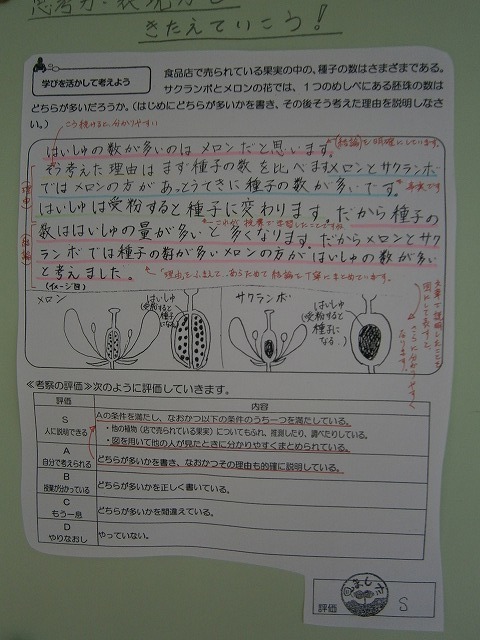 思考力・表現力を
きたえていこう!
学びを活かして考えよう
食品店で売られている果実の中の、種子の数はさまざまである。
サクランボとメロンの花では、1つのめしべにある胚珠の数は
どちらが多いだろうか。(はじめにどちらが多いかを書き、その後そう考えた理由を説明しなさ
い。)
こう続けると、分かりやすい
はいしゅの数が多いのはメロンだと思います。
「結論」を明確にしています。
そう考えた理由はまず種子の数を比べますメロンとサクランボ
ではメロンの方があっとうてきに種子の数が多いです。
事実です
理由
はいしゅは受粉すると種子に変わります。だから種子の
これが、授業で学習したことですね
数ははいしゅの量が多いと多くなります。だからメロンとサク
結論
ランボでは種子の数が多いメロンの方がはいしゅの数が多い
と考えました。
「理由」をふまえて、あらためて結論を丁寧にまとめています。
(イメージ図)
メロン
はいしゅ
(受粉すると
種子
になる)
サクランボ
はいしゅ
(受粉すると
種子に
なる。)
文章で説明したことを
図にして表すと、
さらに分かりやすく
なります。
≪考察の評価≫次のように評価していきます。
評価
内容
S
人に説明できる
Aの条件を満たし、なおかつ以下の条件のうち一つを満たしている。
・他の植物(店で売られている果実)についてもふれ、推測したり、調べたりしている。
・図を用いて他の人が見たときに分かりやすくまとめられている。
A
自分で考えられる
どちらが多いかを書き、なおかつその理由も的確に説明している。
B
授業が分かっている
どちらが多いかを正しく書いている。
C
もう一息
どちらが多いかを間違えている。
D
やりなおし
やっていない。
評価
みました
S